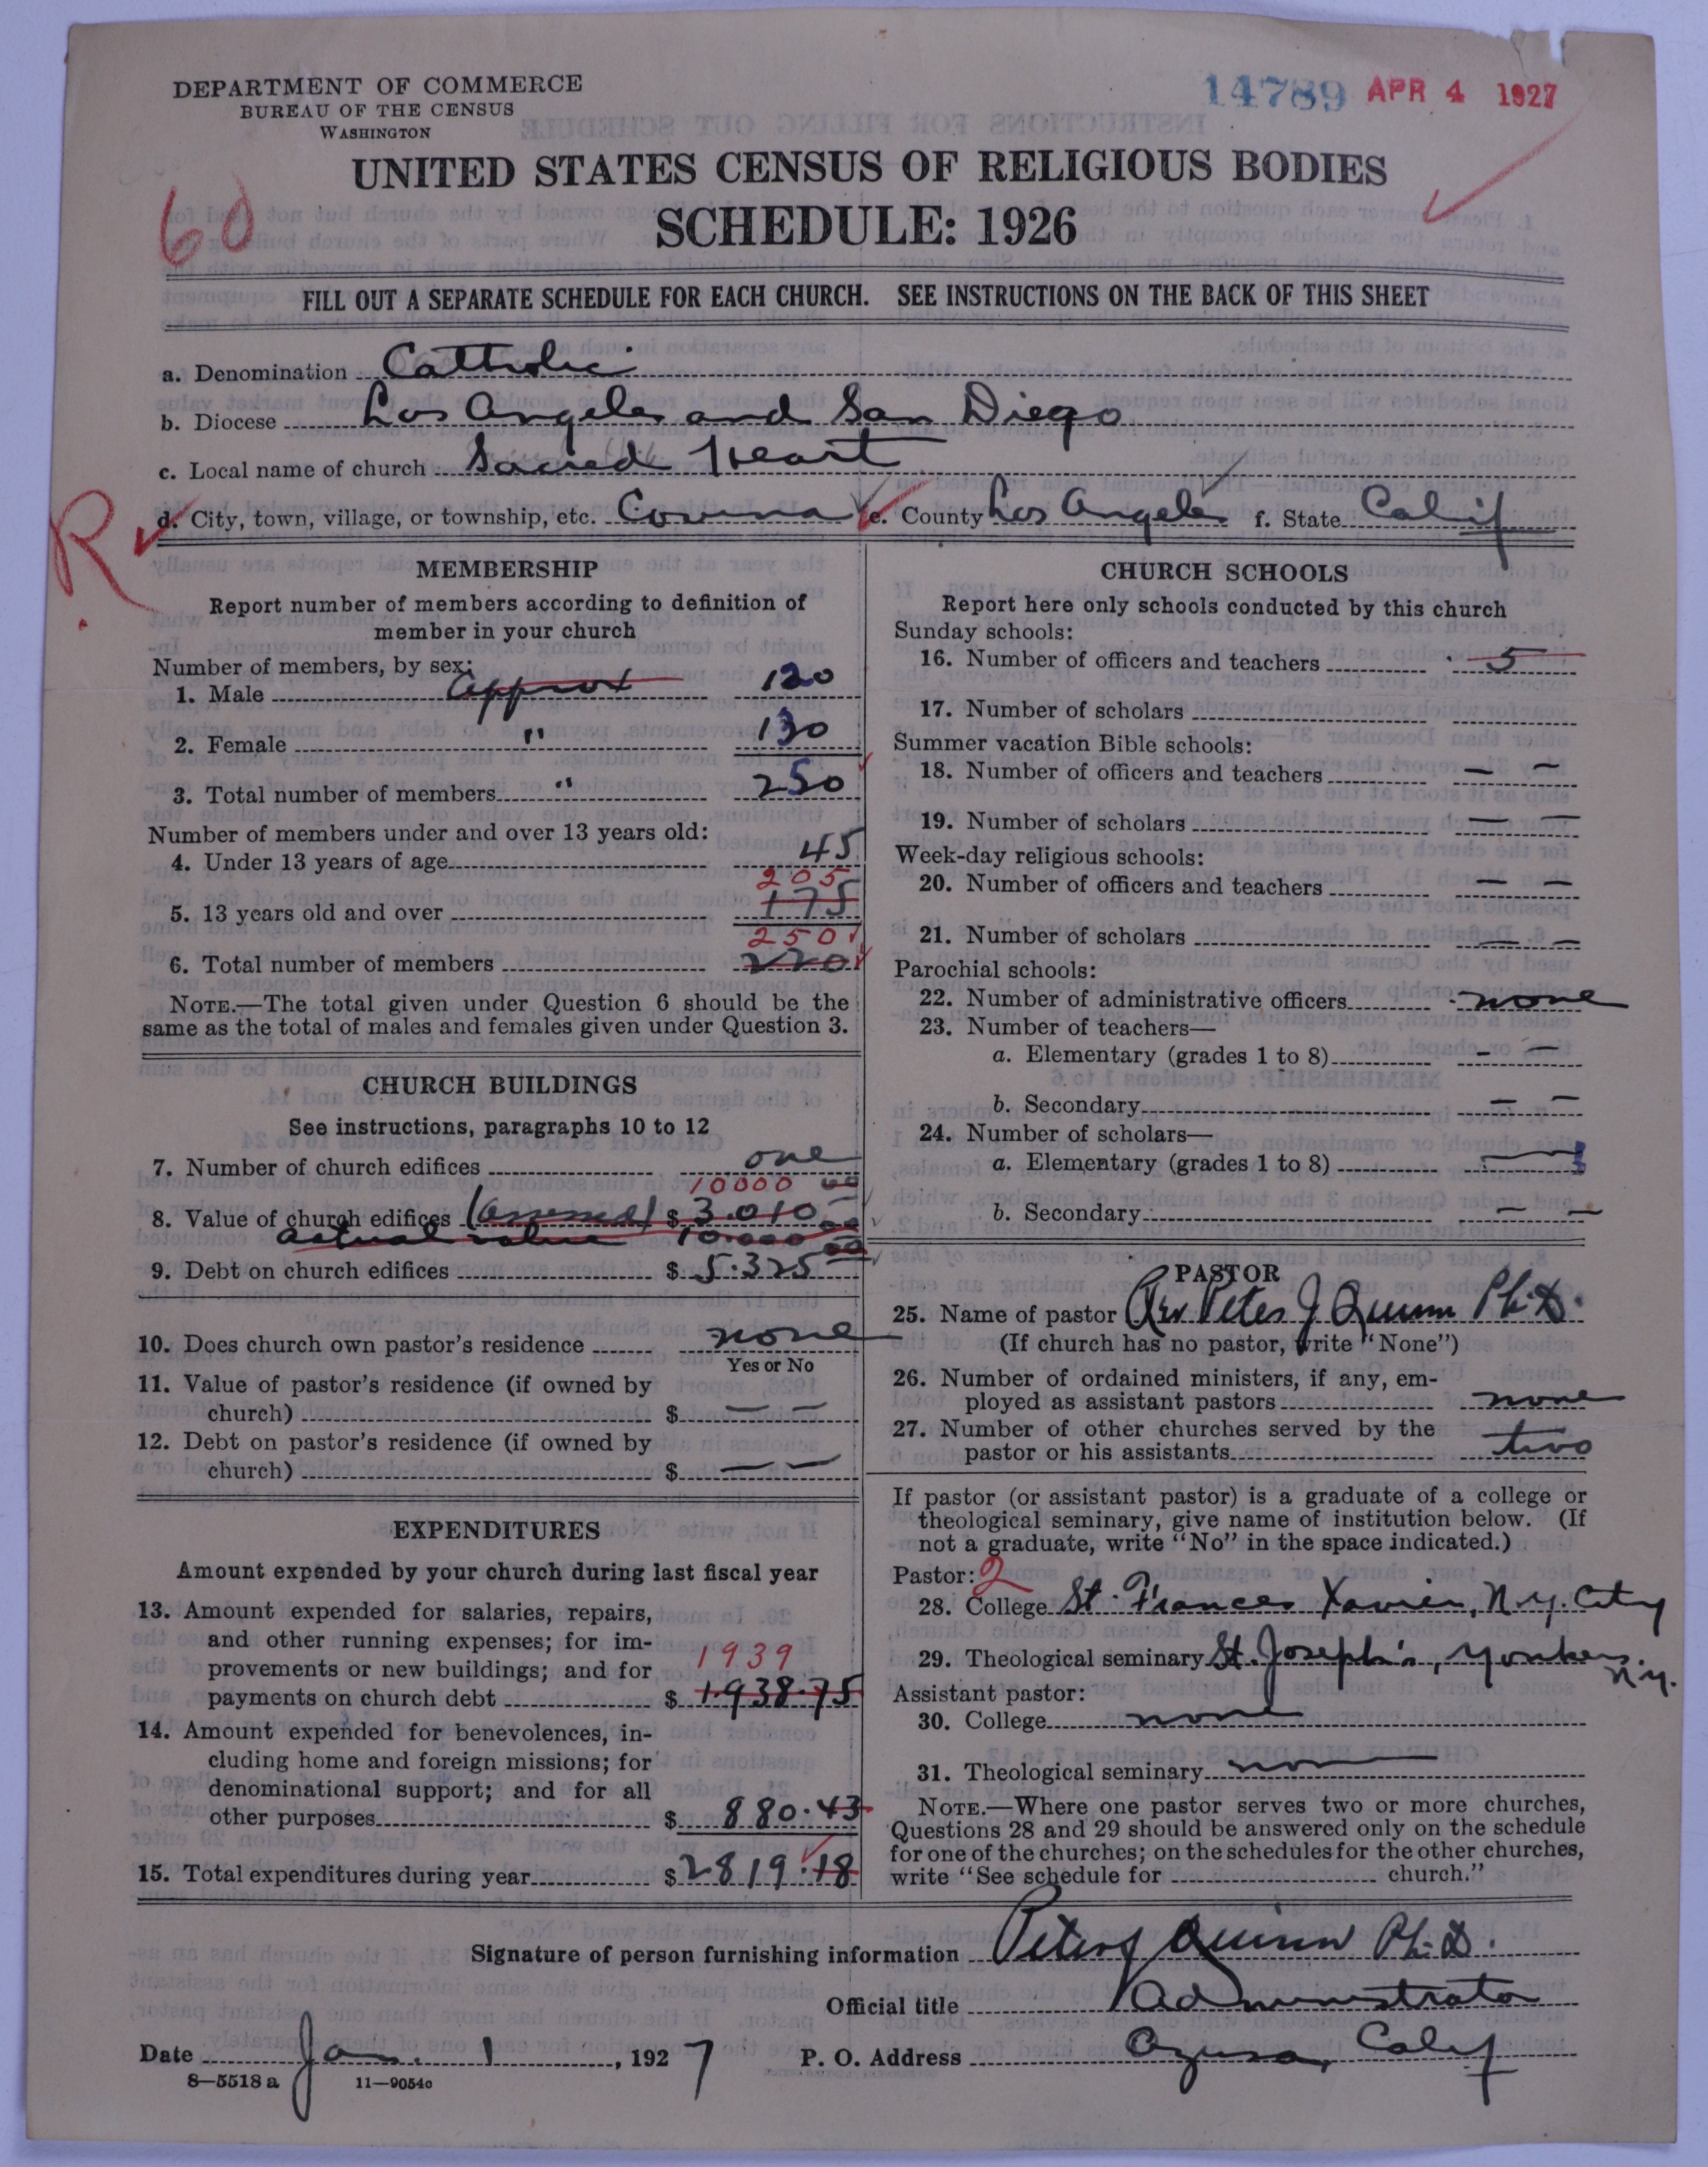 DEPARTMENT OF COMMERCE
BUREAU OF THE CENSUS
WASHINGTON
14789 APR 4 1927
UNITED STATES CENSUS OF RELIGIOUS BODIES
60
SCHEDULE: 1926
FILL OUT A SEPARATE SCHEDULE FOR EACH CHURCH. SEE INSTRUCTIONS ON THE BACK OF THIS SHEET
a. Denomination Catholic
b. Diocese Los Angeles and San Diego
c. Local name of church Sacred Heart
R d. City, town, village, or township, etc. Covina e. County Los Angeles f. State Calif
MEMBERSHIP
Report number of members according to definition of
member in your church
Number of members, by sex:
1. Male approx 120
2. Female " 130
3. Total number of members " 250
Number of members under and over 13 years old:
4. Under 13 years of age 45
205
5. 13 years old and over 175
250
6. Total number of members 220
NOTE.—The total given under Question 6 should be the
same as the total of males and females given under Question 3.
CHURCH BUILDINGS
See instructions, paragraphs 10 to 12
7. Number of church edifices one
10000 00
8. Value of church edifices (assessed) $ 3.010
actual value 10.000 00
9. Debt on church edifices $ 5.325 00
10. Does church own pastor's residence none
Yes or No
11. Value of pastor's residence (if owned by
church) $ — —
12. Debt on pastor's residence (if owned by
church) $ — —
EXPENDITURES
Amount expended by your church during last fiscal year
13. Amount expended for salaries, repairs,
and other running expenses; for im-
provements or new buildings; and for 1939
payments on church debt $ 1.938.75
14. Amount expended for benevolences, in-
cluding home and foreign missions; for
denominational support; and for all
other purposes $ 880.43
15. Total expenditures during year $ 2819.18
CHURCH SCHOOLS
Report here only schools conducted by this church
Sunday schools:
16. Number of officers and teachers 5
17. Number of scholars
Summer vacation Bible schools:
18. Number of officers and teachers — —
19. Number of scholars — —
Week-day religious schools:
20. Number of officers and teachers — —
21. Number of scholars — —
Parochial schools:
22. Number of administrative officers none
23. Number of teachers—
a. Elementary (grades 1 to 8) — —
b. Secondary — —
24. Number of scholars—
a. Elementary (grades 1 to 8) —
b. Secondary — —
PASTOR
25. Name of pastor Rev Peter J Quinn Ph.D.
(If church has no pastor, write "None")
26. Number of ordained ministers, if any, em-
ployed as assistant pastors none
27. Number of other churches served by the
pastor or his assistants two
If pastor (or assistant pastor) is a graduate of a college or
theological seminary, give name of institution below. (If
not a graduate, write "No" in the space indicated.)
Pastor: 2
28. College St. Frances Xavier, N.Y. City
29. Theological seminary St. Joseph's, Yonkers. N.Y.
Assistant pastor:
30. College none
31. Theological seminary
NOTE.—Where one pastor serves two or more churches,
Questions 28 and 29 should be answered only on the schedule
for one of the churches; on the schedules for the other churches,
write "See schedule for church."
Signature of person furnishing information Peter J Quinn Ph.D.
Official title Administrator
Date Jan. 1, 1927 P. O. Address Azusa, Calif
8—5518 a 11—9054c